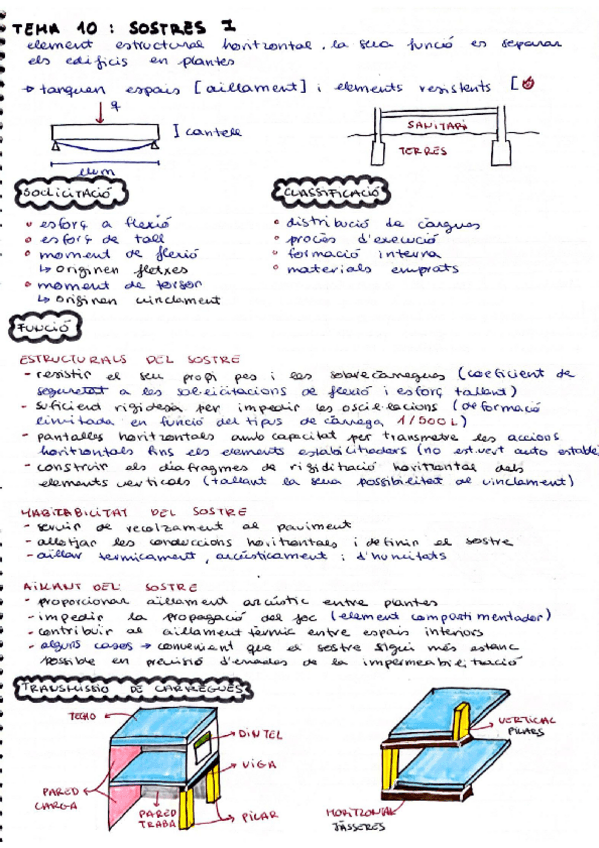 TEMA 10 : SOSTRES I
element estructural horitzontal. la seva funció es separar
els edificis en plantes
→ tanquen espais [aïllament] i elements resistents [
q
cantell
llum
SANITARI
TERRES
SOL·LICITACIÓ
CLASSIFICACIÓ
esforç a flexió
esforç de tall
moment de flexió
↳ originen fletxes
moment de torsor
↳ originen vinclament
distribució de càrgues
procés d'execució
formació interna
materials emprats
FUNCIÓ
ESTRUCTURALS DEL SOSTRE
- resistir el seu propi pes i les sobrecàrregues (coeficient de
seguretat a les sol·licitacions de flexió i esforç tallant)
- suficient rigidesa per impedir les oscil·lacions (deformació
limitada en funció del tipus de càrrega 1/500 L)
- pantalles horitzontals amb capacitat per transmetre les accions
horitzontals fins els elements estabilitzadors (no est.vert auto estable
- construir els diafragmes de rigidització horitzontal dels
elements verticals (tallant la seva possibilitat de vinclament)
HABITABILITAT DEL SOSTRE
- servir de recolzament al paviment
- allotjar les conduccions horitzontals i definir el sostre
- aïllar tèrmicament, acústicament i d'humitats
AïLLANT DEL SOSTRE
- proporcionar aïllament acústic entre plantes
- impedir la propagació del foc (element compartimentador)
- contribuir al aïllament tèrmic entre espais interiors
- alguns casos → convenient que el sostre sigui més estanc
possible en previsió d'errades de la impermeabilització
TRANSMISSIO DE CARREGUES
TECHO
DINTEL
VIGA
PARED
CARGA
PARED
TRABA
PILAR
VERTICAL
PILARS
HORITZONTAL
JÀSSERES